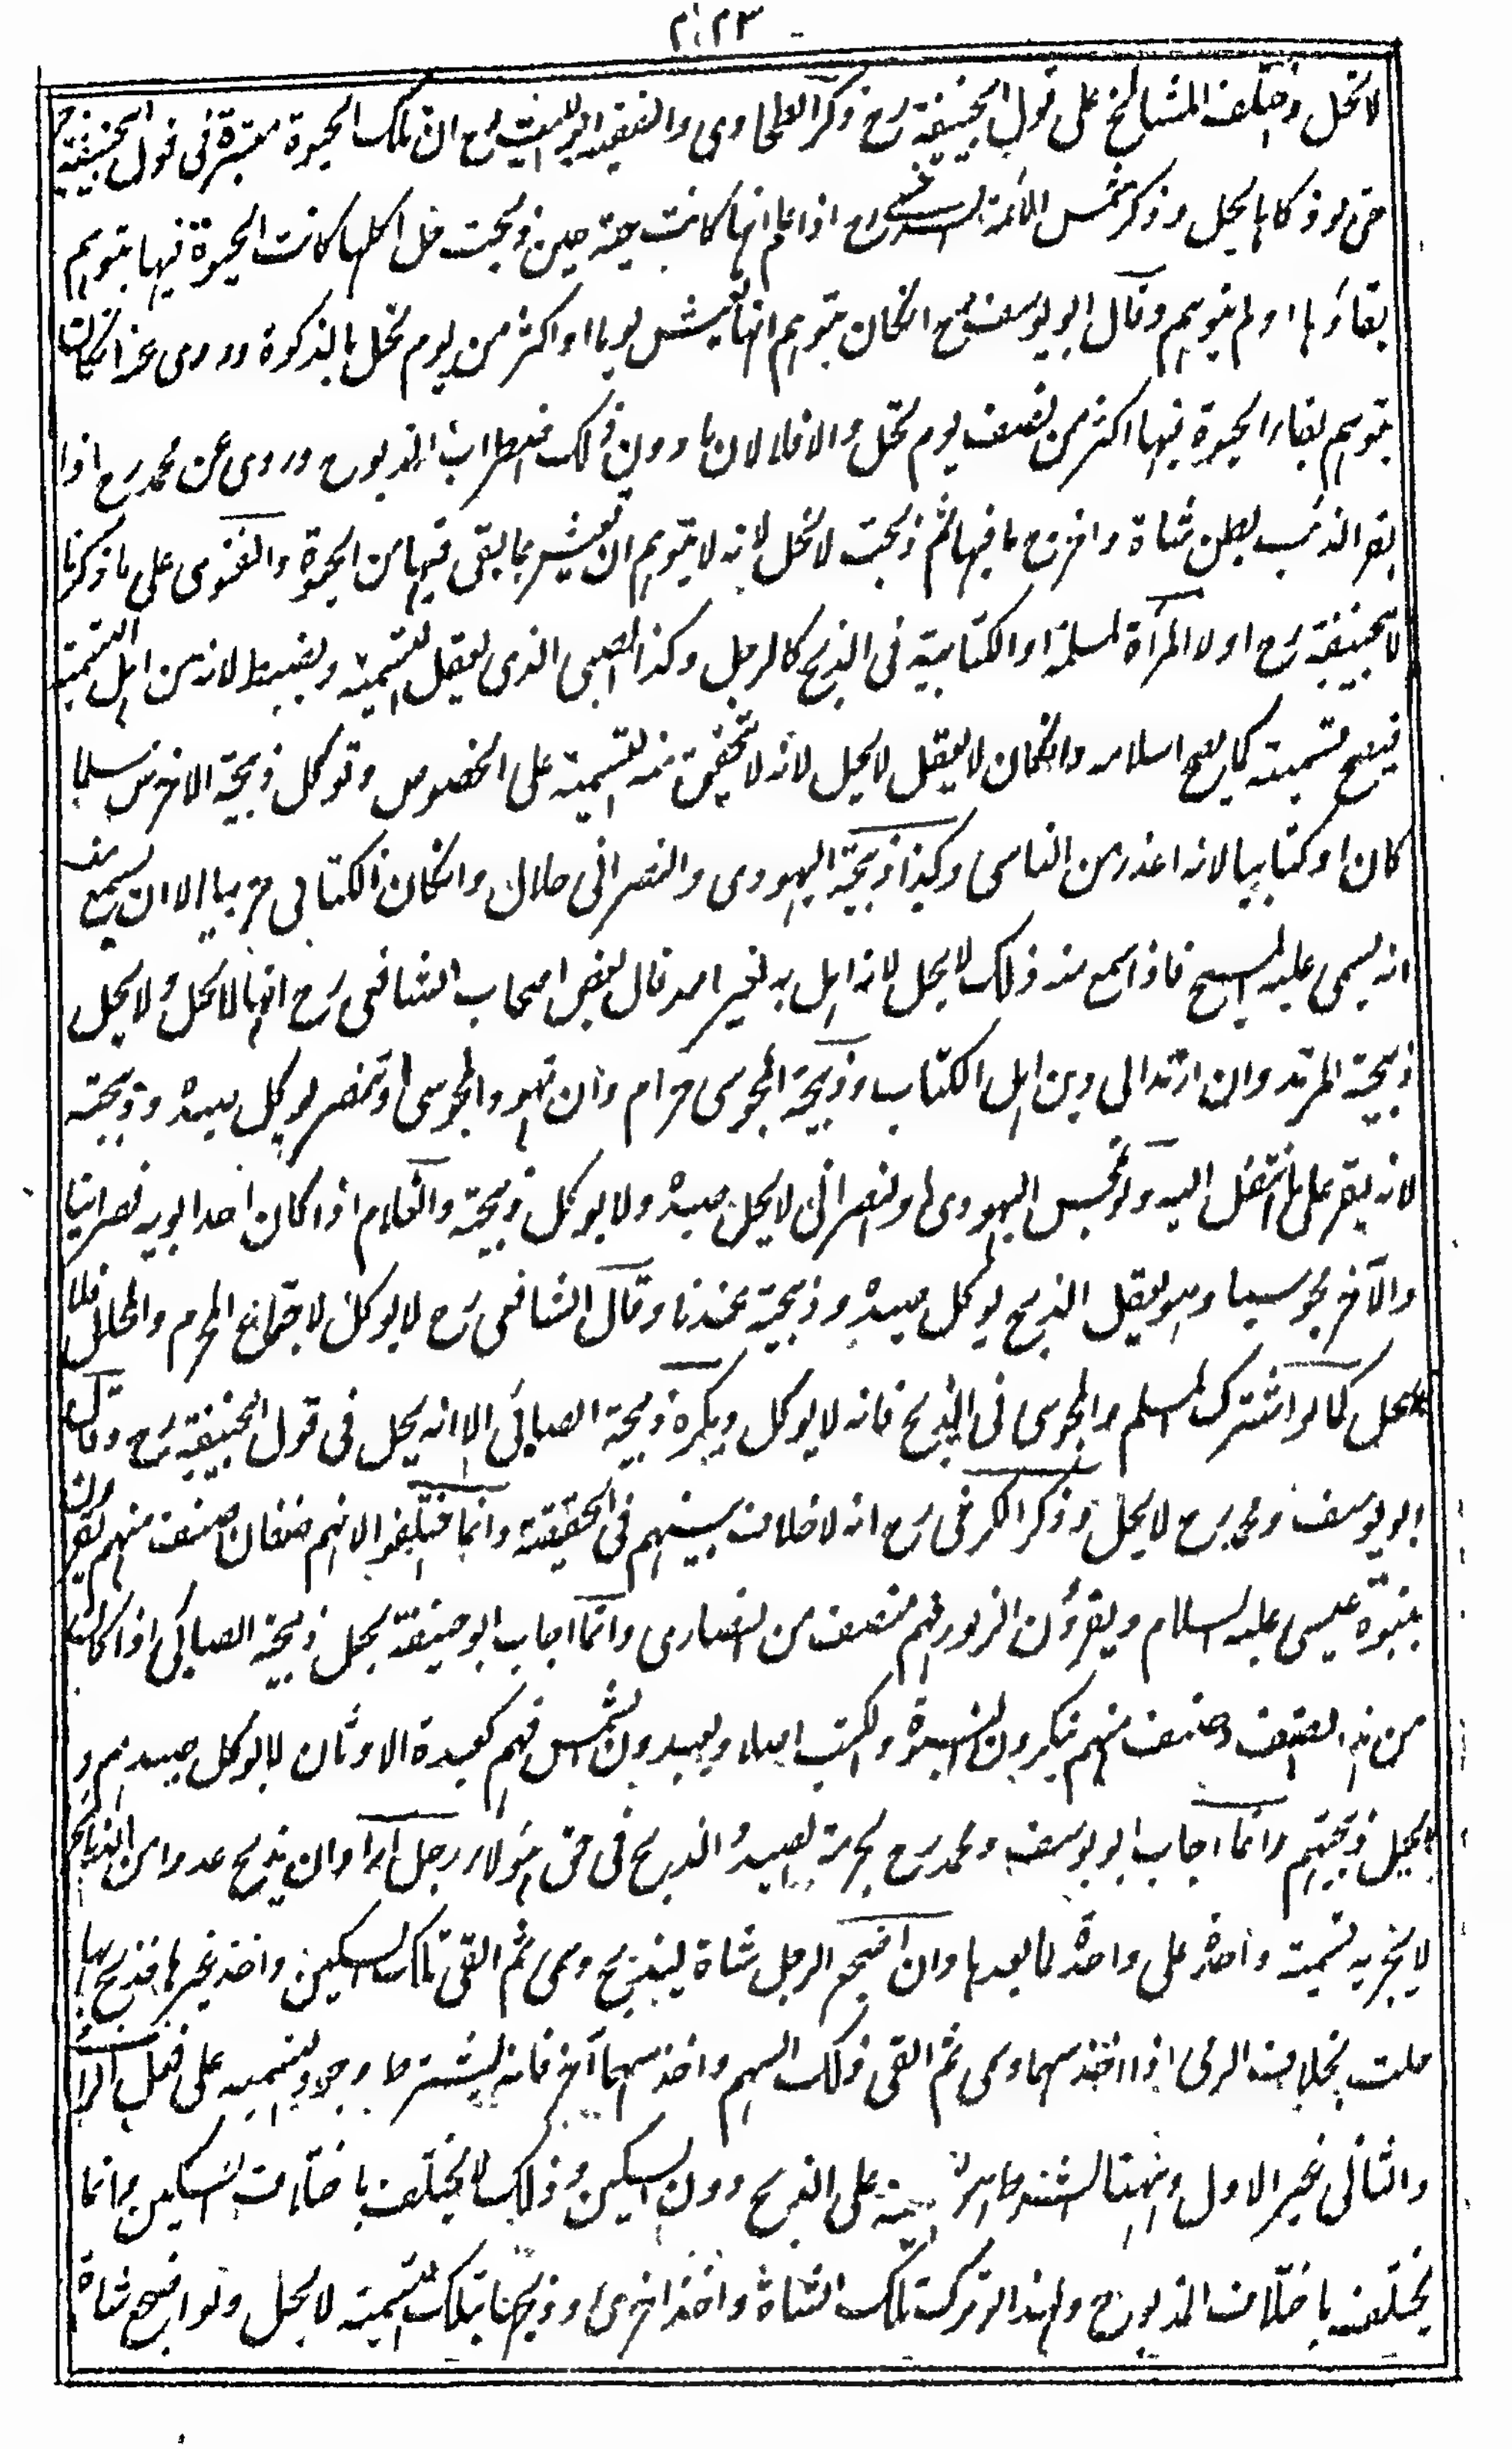 لا تحل واختلف المشايخ على قول ابيحنيفة رح وذكر الطحاوى والفقيه ابو الليث رح ان تلك الحيوة معتبرة فى قول ابيحنيفة رح
حتى لو ذكاها يحل وذكر شمس الائمة السرخسى رح اذا علم انها كانت حية حين ذبحت حل اكلها كانت الحيوة فيها يتوهم
بقاؤها او لم يتوهم وقال ابو يوسف رح انكان يتوهم انها تعيش يوما او اكثر من يوم تحل بالذكوة وروى عنه انكان
يتوهم بقاء الحيوة فيها اكثر من نصف يوم تحل والا فلا لان ما دون ذلك اضطراب المذبوح وروى عن محمد رح اذا
بقر الذئب بطن شاة واخرج ما فيها ثم ذبحت لا تحل لانه لا يتوهم ان تعيش بما بقى فيها من الحيوة والفتوى على ما ذكرنا
لابيحنيفة رح اولا المرأة المسلمة او الكتابية فى الذبح كالرجل وكذا الصبى الذى يعقل التسمية ويضبط لانه من اهل التسمية
فيصح تسميته كما يصح اسلامه وانكان لا يعقل لا يحل لانه لا يتحقق منه التسمية على الخصوص وتوكل ذبيحة الاخرس مسلما
كان او كتابيا لانه اعذر من الناسى وكذا ذبيحة اليهودى والنصرانى حلال وانكان الكتابى حربيا الا ان يسمع منه
انه يسمى عليه المسيح فاذا سمع منه ذلك لا يحل لانه اهل به لغير الله وقال بعض اصحاب الشافعى رح انها لا تحل ولا يحل
ذبيحة المرتد وان ارتد الى دين اهل الكتاب وذبيحة المجوسى حرام وان تهود المجوسى او تنصر يوكل صيده وذبيحته
لانه يقر على ما انتقل اليه ولو تمجس اليهودى او النصرانى لا يحل صيده ولا يوكل ذبيحته والغلام اذا كان احد ابويه نصرانيا
والآخر مجوسيا وهو يعقل الذبح يوكل صيده وذبيحته عندنا وقال الشافعى رح لا يوكل لاجتماع المحرم والمحلل فلا
يحل كما لو اشترك المسلم والمجوسى فى الذبح فانه لا يوكل ويكره ذبيحة الصابئ الا انه يحل فى قول ابيحنيفة رح وقال
ابو يوسف ومحمد رح لا يحل وذكر الكرخى رح انه لا خلاف بينهم فى الحقيقة وانما اختلفوا لانهم صنفان صنف منهم يقرون
بنبوة عيسى عليه السلام ويقرؤن الزبور فهم صنف من النصارى وانما اجاب ابو حنيفة بحل ذبيحة الصابئ اذا كان
من هذا الصنف وصنف منهم ينكرون النبوة والكتب اصلا ويعبدون الشمس فهم كعبدة الاوثان لا يوكل صيدهم و
لا يحل ذبيحتهم وانما اجاب ابو يوسف ومحمد رح بحرمة الصيد والذبح فى حق هؤلاء رجل اراد ان يذبح عددا من الذبائح
لا يجزيه تسمية واحدة على واحدة لما بعدها وان اضجع الرجل شاة ليذبح وسمى ثم القى تلك السكين واخذ غيرها فذبح بها
حلت بخلاف الرمى اذا اخذ سهما وسمى ثم القى ذلك السهم واخذ سهما آخر فانه يشترط وجود التسمية على فعل الرمى
والثانى غير الاول وههنا الشرط هو التسمية على الذبح دون السكين وذلك لا يختلف باختلاف السكين وانما
يختلف باختلاف المذبوح ولهذا لو تركت تلك الشاة واخذ اخرى وذبحها بتلك التسمية لا يحل ولو اضجع شاة